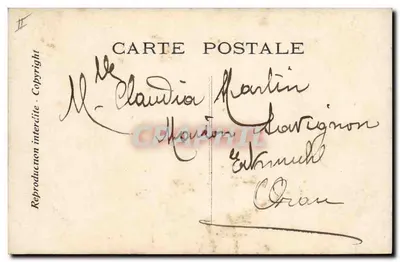 II
CARTE POSTALE
Mlle Claudia Martin
Maison Savignon
Eckmuhl
Oran
Reproduction interdite - Copyright